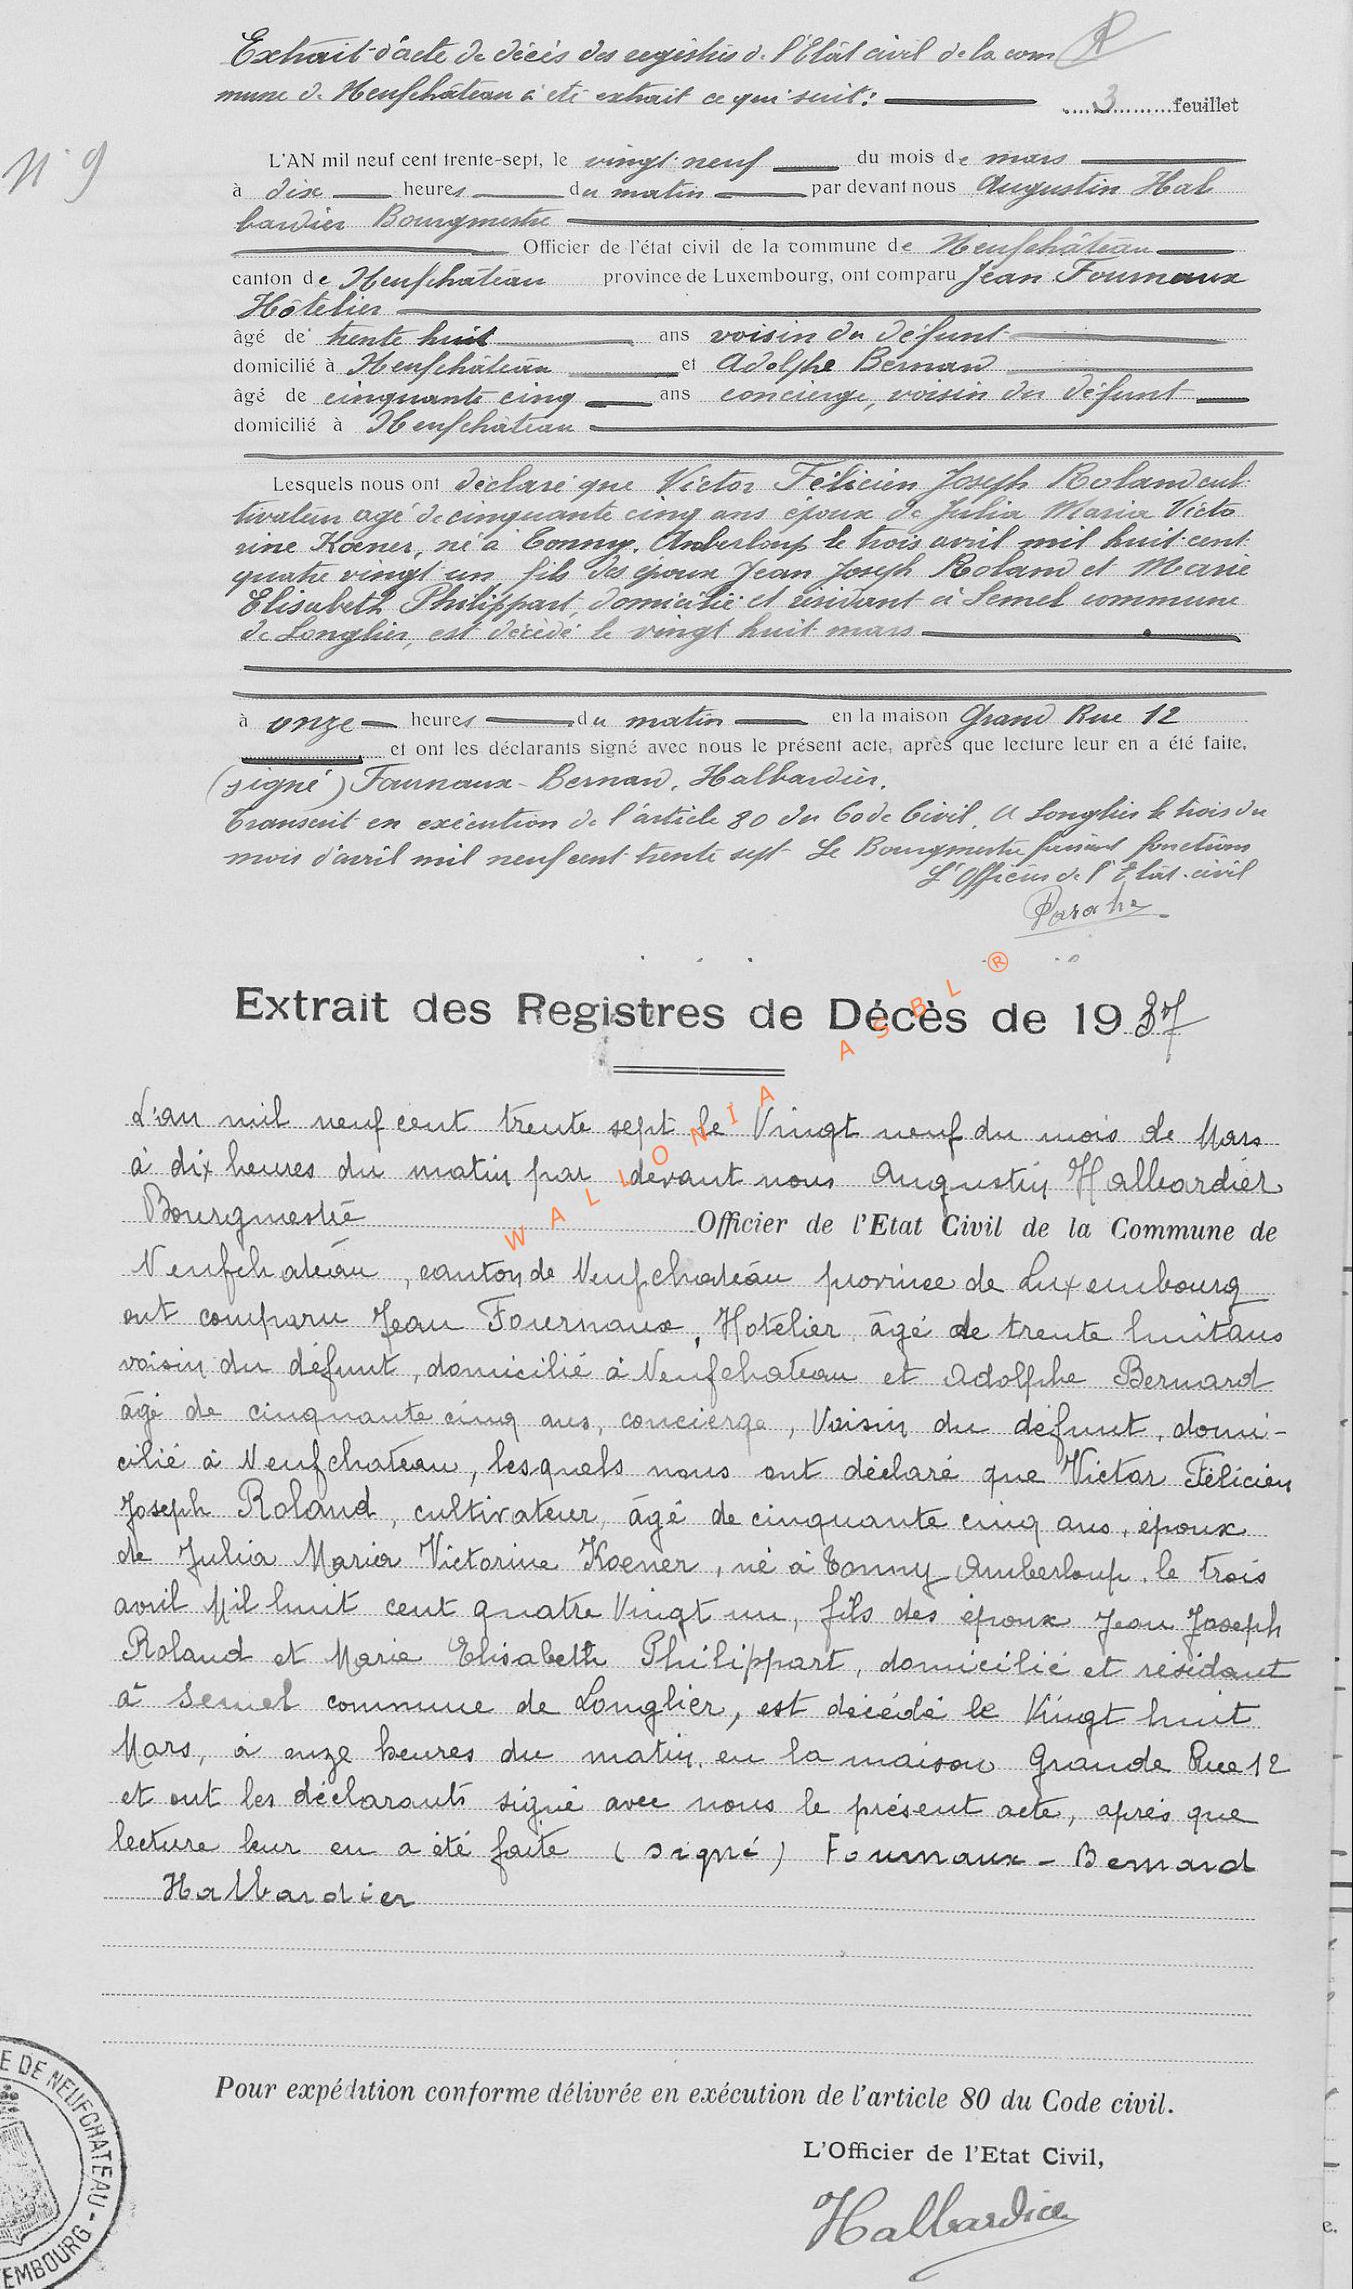 Extrait d'acte de décès des registres de l'Etat civil de la com R
mune de Neufchâteau a été extrait ce qui suit :
3 feuillet
N° 9
L'AN mil neuf cent trente-sept, le vingt neuf du mois de mars
à dix heures du matin par devant nous Augustin Hal
bardier Bourgmestre
Officier de l'état civil de la commune de Neufchâteau
canton de Neufchâteau province de Luxembourg, ont comparu Jean Fournaux
Hôtelier
âgé de trente huit ans voisin du défunt
domicilié à Neufchâteau et Adolphe Bernard
âgé de cinquante cinq ans concierge, voisin du défunt
domicilié à Neufchâteau
Lesquels nous ont déclaré que Victor Félicien Joseph Roland cul
tivateur agé de cinquante cinq ans époux de Julia Maria Victo
rine Koener, né à Tonny. Amberloup le trois avril mil huit cent
quatre vingt un, fils des époux Jean Joseph Roland et Marie
Elisabeth Philippart, domicilié et résidant à Semel commune
de Longlier, est décédé le vingt huit mars
à onze heures du matin en la maison Grand Rue 12
et ont les déclarants signé avec nous le présent acte, après que lecture leur en a été faite.
(signé) Fournaux - Bernard. Halbardier.
Transcrit en exécution de l'article 80 du Code Civil. A Longlier le trois du
mois d'avril mil neuf cent trente sept Le Bourgmestre faisant fonctions
L'Officier de l'Etat-civil
Extrait des Registres de Décès de 1937
L'an mil neuf cent trente sept le Vingt neuf du mois de Mars
à dix heures du matin par devant nous Augustin Halbardier
Bourgmestre Officier de l'Etat Civil de la Commune de
Neufchateau, canton de Neufchateau province de Luxembourg
ont comparu Jean Fournaux, Hotelier, âgé de trente huit ans
voisin du défunt, domicilié à Neufchateau et Adolphe Bernard
âgé de cinquante cinq ans, concierge, Voisin du défunt, domi-
cilié à Neufchateau, lesquels nous ont déclaré que Victor Félicien
Joseph Roland, cultivateur, âgé de cinquante cinq ans, époux
de Julia Maria Victorine Koener, né à Tonny Amberloup, le trois
avril Mil huit cent quatre Vingt un, fils des époux Jean Joseph
Roland et Marie Elisabeth Philippart, domicilié et résidant
à Semel commune de Longlier, est décédé le Vingt huit
Mars, à onze heures du matin. en la maison Grande Rue 12
et ont les déclarants signé avec nous le présent acte, après que
lecture leur en a été faite (signé) Fournaux - Bernard
Halbardier
WALLONIA ASBL ®
Pour expédition conforme délivrée en exécution de l'article 80 du Code civil.
L'Officier de l'Etat Civil,
Halbardier
E DE NEUFCHATEAU -
EMBOURG